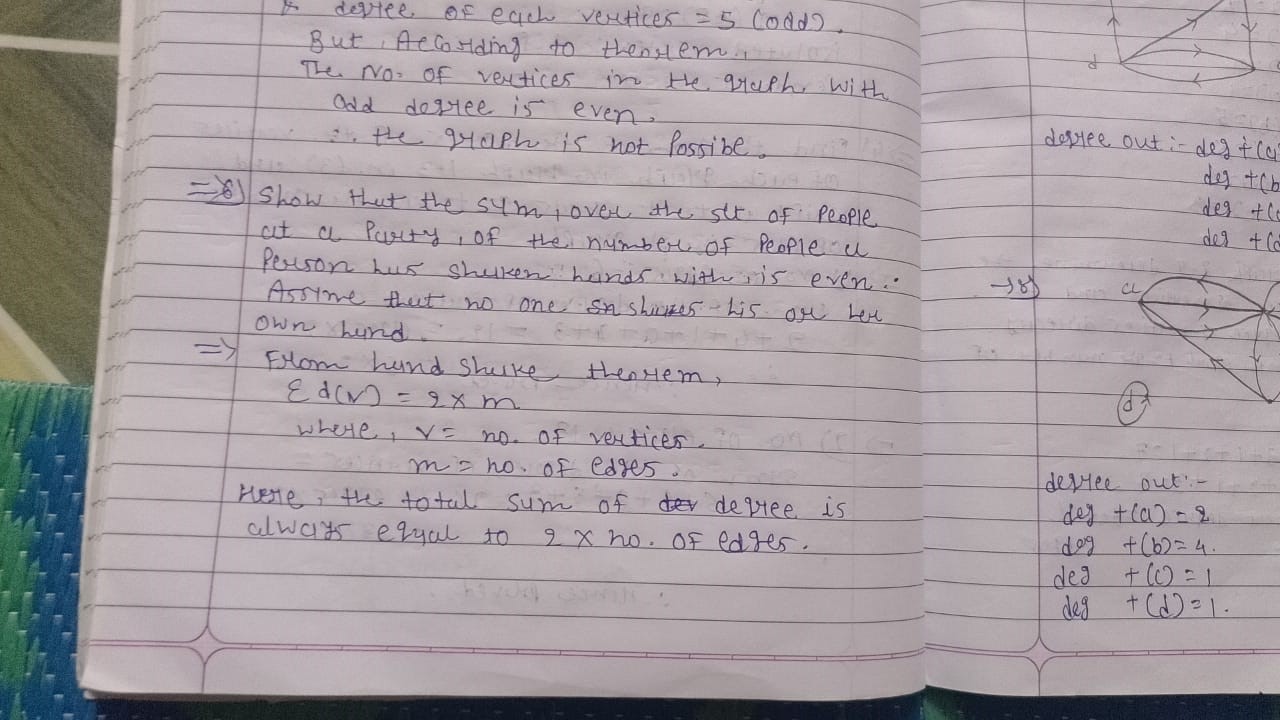 degree of each vertices = 5 (odd).
But, According to theorem,
The No. of vertices in the graph with
odd degree is even.
∴ the graph is not Possibe.
=> 6) Show that the sym, over the set of People
at a Party, of the number of People a
Person has shaken hands with, is even.
Assime that no one shakes his or her
own hand.
=> From hand shake theorem,
Σd(v) = 2 x m
where, v = no. of vertices.
m = no. of edges.
Here, the total sum of degree is
always eqyal to 2 x no. of edges.
d
degree out :- deg +(a)
deg +(b
deg +(c
deg +(d
→ 8)
a
d
degree out :-
deg +(a) = 2
deg +(b) = 4.
deg +(c) = 1
deg +(d) = 1.